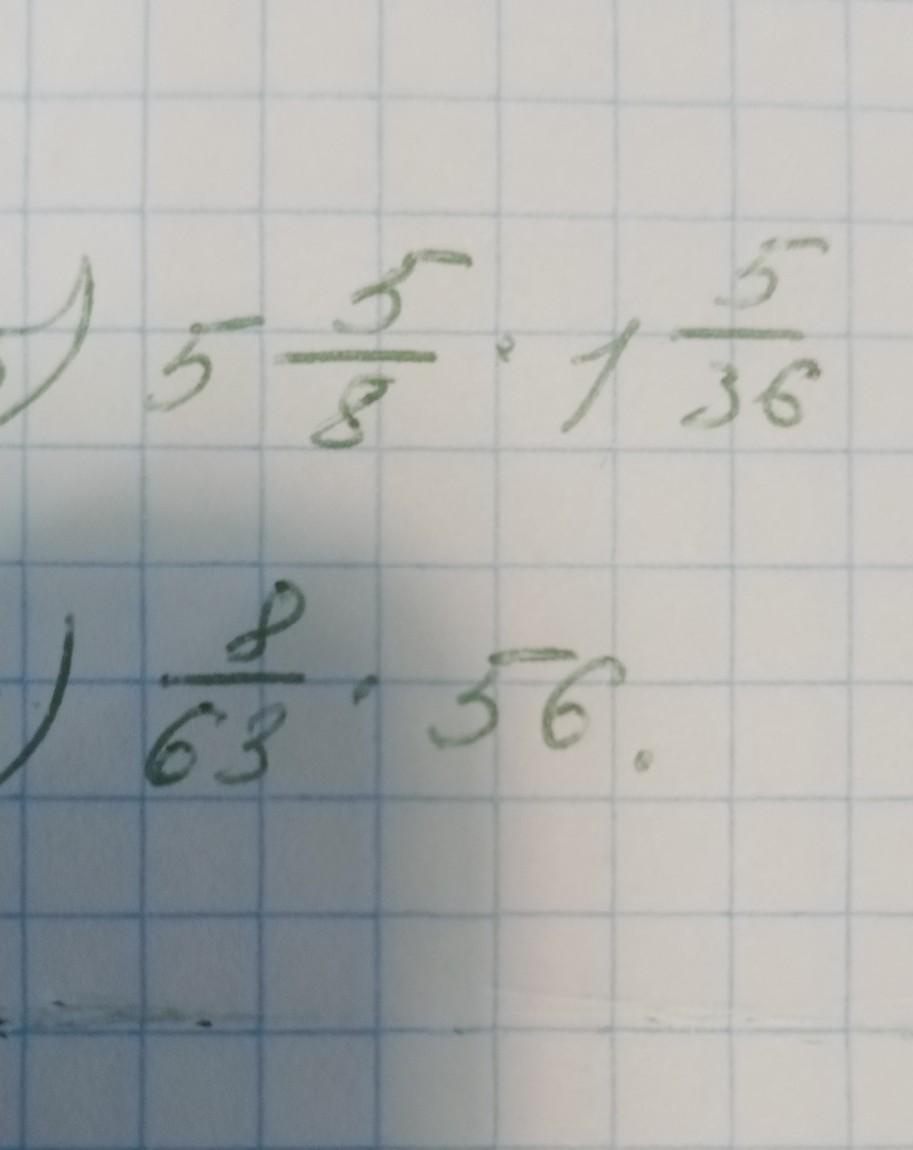 ) 5 5/8 · 1 5/36
) 8/63 · 56.